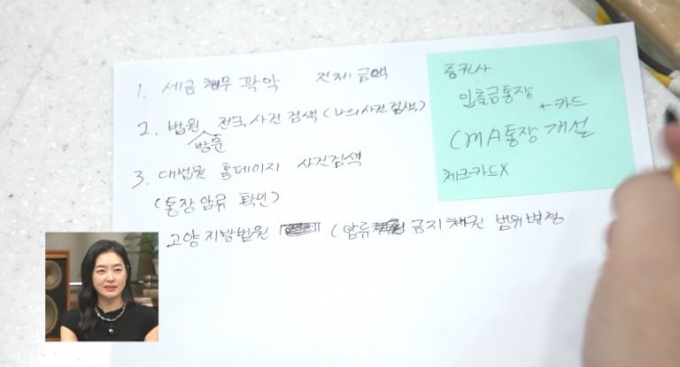 1. 세금 채무 파악 전체 금액
2. 법원 전국 사건 검색 (나의사건검색)
방문
3. 대법원 홈페이지 사건검색
(통장 압류 확인)
고양지방법원 (압류 금지 채권 범위변경
증권사
입출금통장
←카드
CMA통장 개설
체크카드X